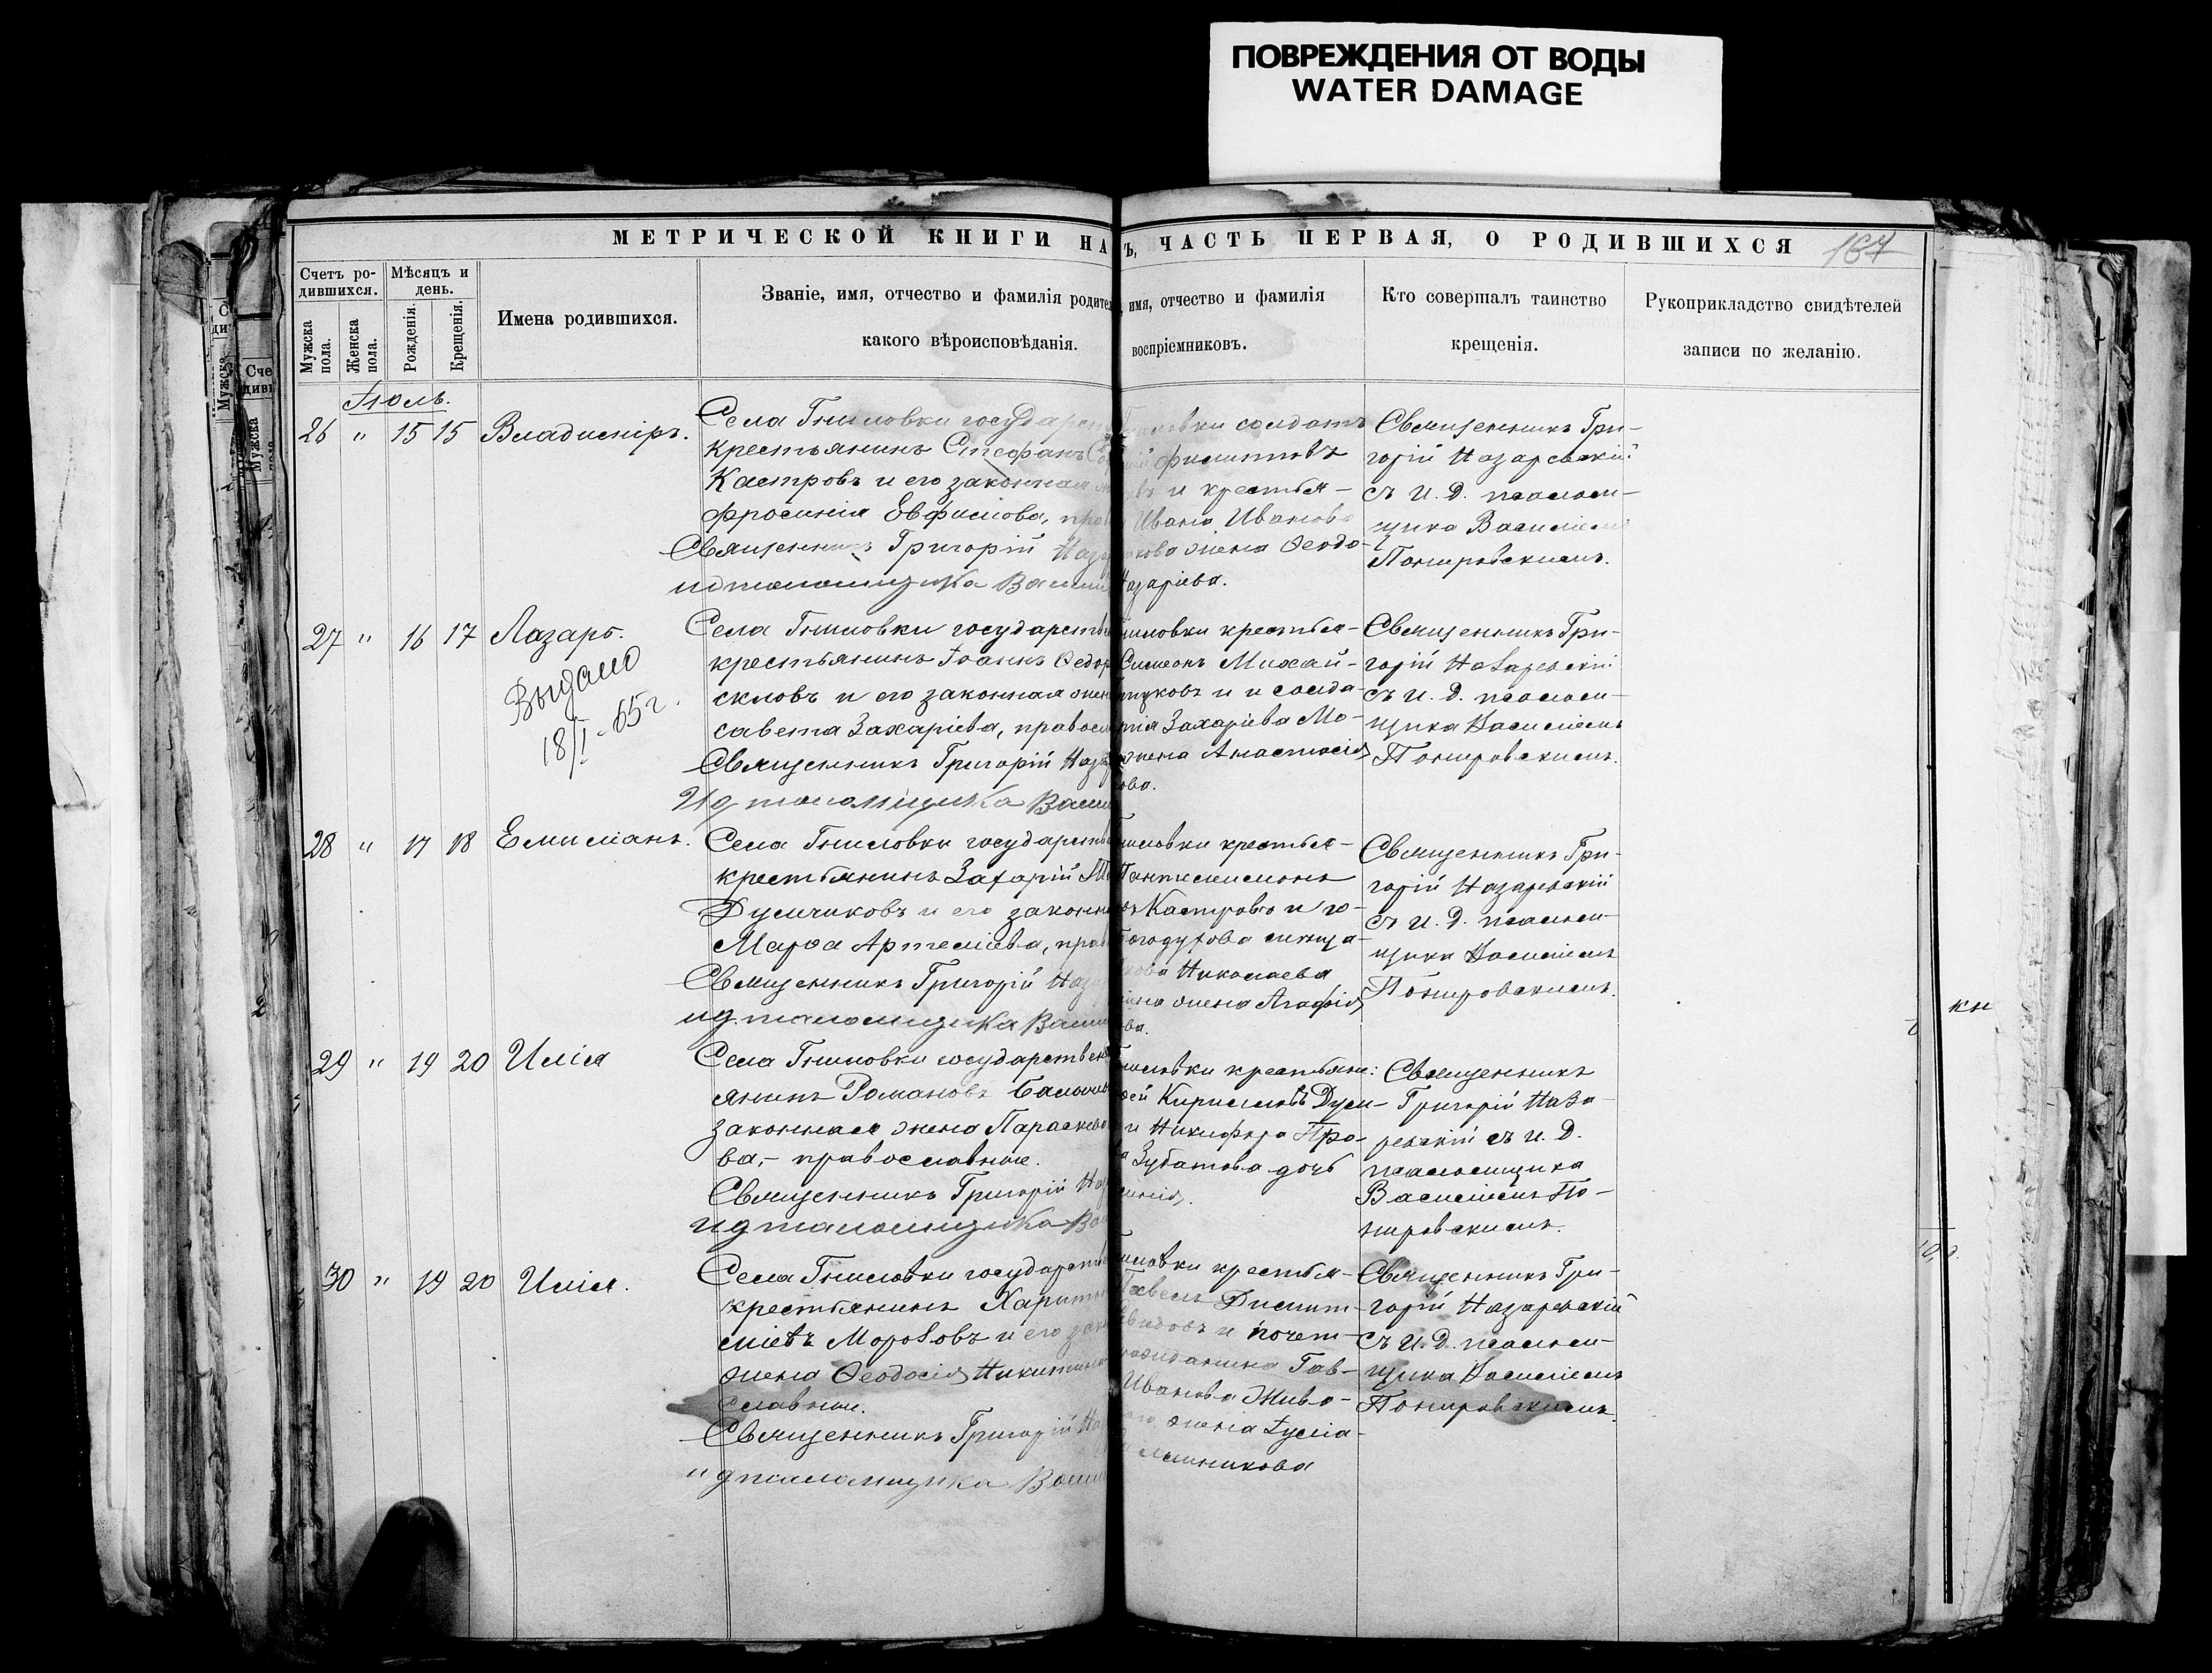 ПОВРЕЖДЕНИЯ ОТ ВОДЫ
WATER DAMAGE
МЕТРИЧЕСКОЙ КНИГИ НА
Ъ, ЧАСТЬ ПЕРВАЯ, О РОДИВШИХСЯ
167
Счетъ ро-
дившихся.
Мужска
пола.
Женска
пола.
Мѣсяцъ и
день.
Рожденія.
Крещенія.
Имена родившихся.
Званіе, имя, отчество и фамилія родител
какого вѣроисповѣданія.
имя, отчество и фамилія
воспріемниковъ.
Кто совершалъ таинство
крещенія.
Рукоприкладство свидѣтелей
записи по желанію.
Іюль.
26 " 15 15 Владиміръ.
Села Гниловки государст
крестьянинъ Стефанъ
Кастровъ и его законная
фросинія Евфимова, пра
Священникъ Григорій Наза
ид псаломщика Васили
солдатъ
филиповъ
и крестья-
Ивана Иванова
жена Ѳеодо-
Назаріева.
Священникъ Гри-
горій Назаревскій
съ И. Д. псалом-
щика Василіемъ
Понировскимъ.
27 " 16 17 Лазарь.
Выдано
18/I-65 г.
Села Гниловки государстве
крестьянинъ Іоаннъ Ѳедор
скловъ и его законная жен
савета Захаріева, правосл
Священникъ Григорій Наза
Ид псаломщика Васи
ниловки крестья-
Симеонъ Михай-
туковъ и и солда-
Захаріева Мо-
жена Анастасія
ова.
Священникъ Гри-
горій Назаревскій
съ И. Д. псалом-
щика Василіемъ
Понировскимъ.
28 " 17 18 Емиліанъ.
Села Гниловки государстве
крестьянинъ Захарій
Думчиковъ и его законна
Марѳа Артеміева, прав
Священникъ Григорій Наза
ид. псаломщика Васи
ниловки крестья-
Пантелимонъ
Кастрова и го-
Богодухова мѣща-
Николаева
жена Агафія
ва.
Священникъ Гри-
горій Назаревскій
съ И. Д. псалом-
щика Василіемъ
Понировскимъ.
29 " 19 20 Илія
Села Гниловки государствен
янинъ Романовъ
законная жена Параскева
ва,- православные.
Священникъ Григорій На
ид псаломщика Ва
ниловки крестьян:
ей Кириловъ Дум-
и Никифора Про-
Зубатова дочь
Священникъ
Григорій Наза-
ревскій съ И. Д.
псаломщика
Василіемъ По-
нировскимъ.
30 " 19 20 Илія.
Села Гниловки государстве
крестьянинъ Харито
міевъ Морозовъ и его зак
жена Ѳеодосія Никитина
славные.
Священникъ Григорій На
ид псаломщика Васи
иловки крестья-
Павелъ Димит-
и почет-
гражданина Гав-
Иванова Живо-
жена Іуліа-
Священникъ Гри-
горій Назаревскій
съ И. Д. псалом-
щика Василіемъ
Понировскимъ.